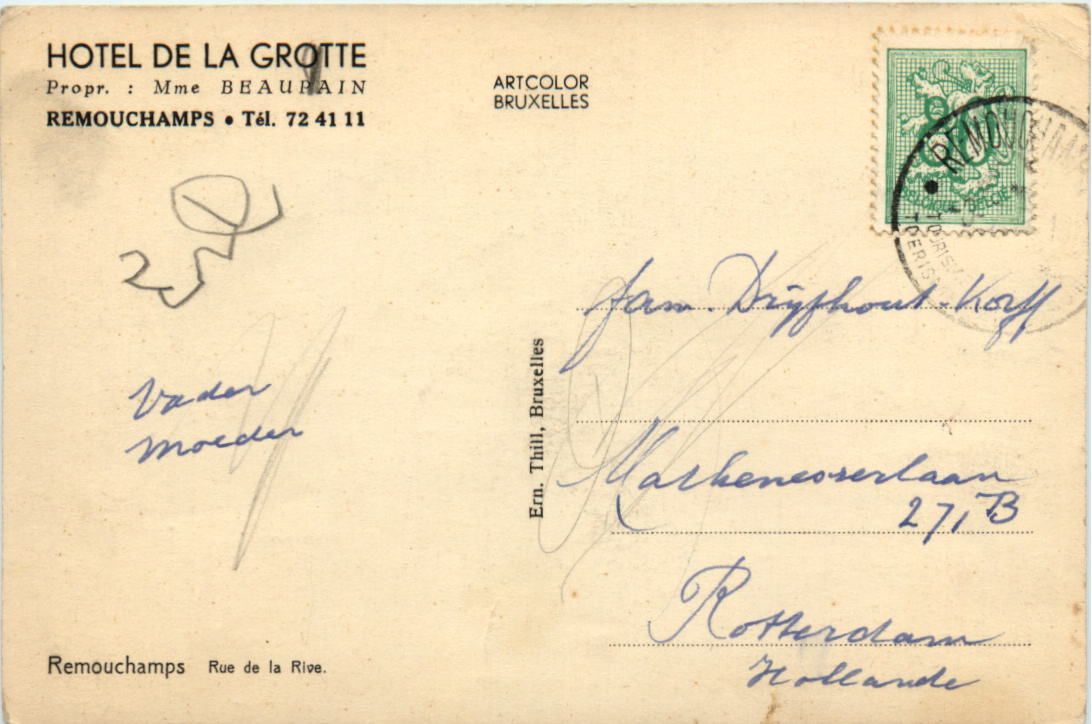 HOTEL DE LA GROTTE
Propr. : Mme BEAUPAIN
REMOUCHAMPS • Tél. 72 41 11
ARTCOLOR
BRUXELLES
REMOUCHAMPS
BELGIQUE-BELGIË
Vader
Moeder
Ern. Thill, Bruxelles
fam. Druijfhout-Korff
Mathenesserlaan
27, B
Rotterdam
Hollande
Remouchamps Rue de la Rive.